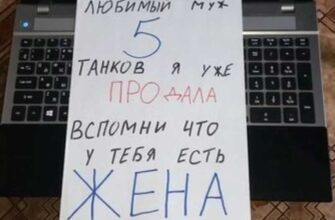 ЛЮБИМЫЙ МУЖ
5
ТАНКОВ Я УЖЕ
ПРОДАЛА
ВСПОМНИ ЧТО
У ТЕБЯ ЕСТЬ
ЖЕНА